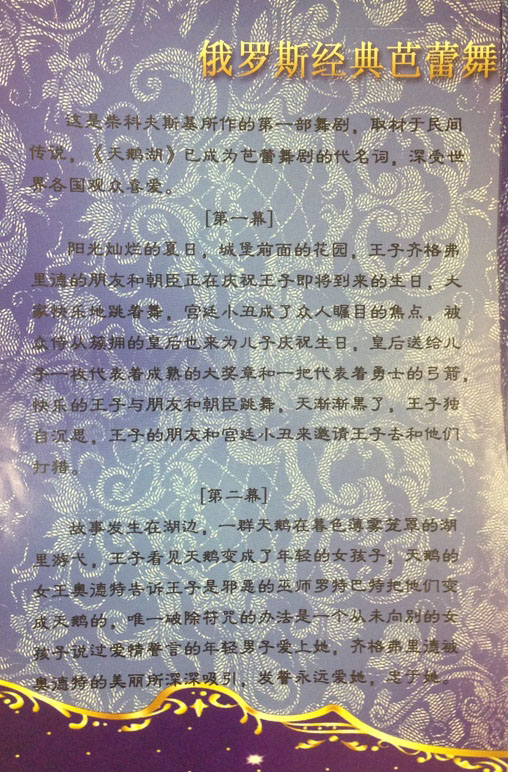 俄罗斯经典芭蕾舞
这是柴科夫斯基所作的第一部舞剧，取材于民间
传说，《天鹅湖》已成为芭蕾舞剧的代名词，深受世
界各国观众喜爱。
[第一幕]
阳光灿烂的夏日，城堡前面的花园，王子齐格弗
里德的朋友和朝臣正在庆祝王子即将到来的生日，大
家快乐地跳着舞，宫廷小丑成了众人瞩目的焦点，被
众侍从簇拥的皇后也来为儿子庆祝生日，皇后送给儿
子一枚代表着成熟的大奖章和一把代表着勇士的弓箭，
快乐的王子与朋友和朝臣跳舞，天渐渐黑了，王子独
自沉思，王子的朋友和宫廷小丑来邀请王子去和他们
打猎。
[第二幕]
故事发生在湖边，一群天鹅在暮色薄雾笼罩的湖
里游弋，王子看见天鹅变成了年轻的女孩子，天鹅的
女王奥德特告诉王子是邪恶的巫师罗特巴特把他们变
成天鹅的，唯一破除符咒的办法是一个从未向别的女
孩子说过爱情誓言的年轻男子爱上她，齐格弗里德被
奥德特的美丽所深深吸引，发誓永远爱她，忠于她。